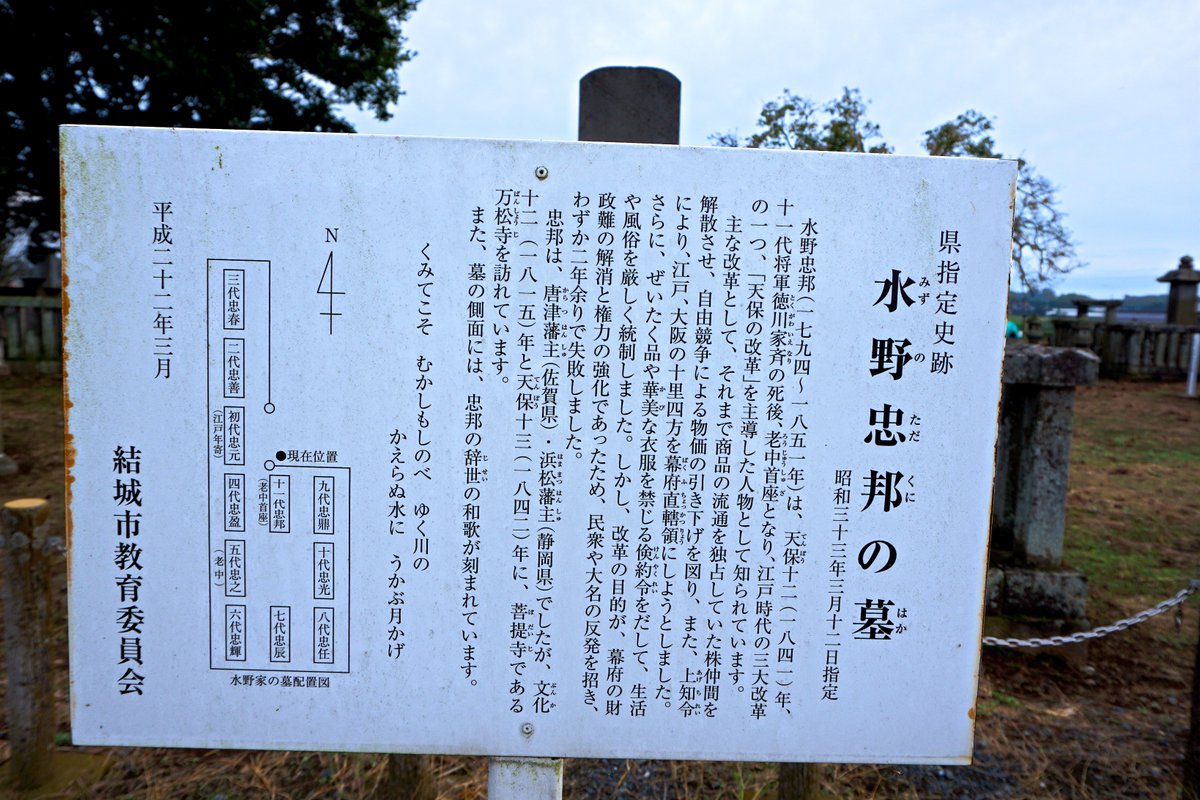 県指定史跡
水野忠邦の墓
みずのただくにのはか
昭和三十三年三月十二日指定
水野忠邦(一七九四〜一八五一年)は、天保十二(一八四一)年、
十一代将軍徳川家斉の死後、老中首座となり、江戸時代の三大改革
の一つ、「天保の改革」を主導した人物として知られています。
主な改革として、それまで商品の流通を独占していた株仲間を
解散させ、自由競争による物価の引き下げを図り、また、上知令
により、江戸、大阪の十里四方を幕府直轄領にしようとしました。
さらに、ぜいたく品や華美な衣服を禁じる倹約令をだして、生活
や風俗を厳しく統制しました。しかし、改革の目的が、幕府の財
政難の解消と権力の強化であったため、民衆や大名の反発を招き、
わずか二年余りで失敗しました。
忠邦は、唐津藩主(佐賀県)・浜松藩主(静岡県)でしたが、文化
十二(一八一五)年と天保十三(一八四二)年に、菩提寺である
万松寺を訪れています。
また、墓の側面には、忠邦の辞世の和歌が刻まれています。
くみてこそ むかしもしのべ ゆく川の
かえらぬ水に うかぶ月かげ
N
●現在位置
三代忠春
二代忠善
初代忠元
(江戸年寄)
四代忠盈
五代忠之
(老中)
六代忠輝
十一代忠邦
(老中首座)
七代忠辰
九代忠鼎
十代忠光
八代忠任
水野家の墓配置図
平成二十二年三月
結城市教育委員会